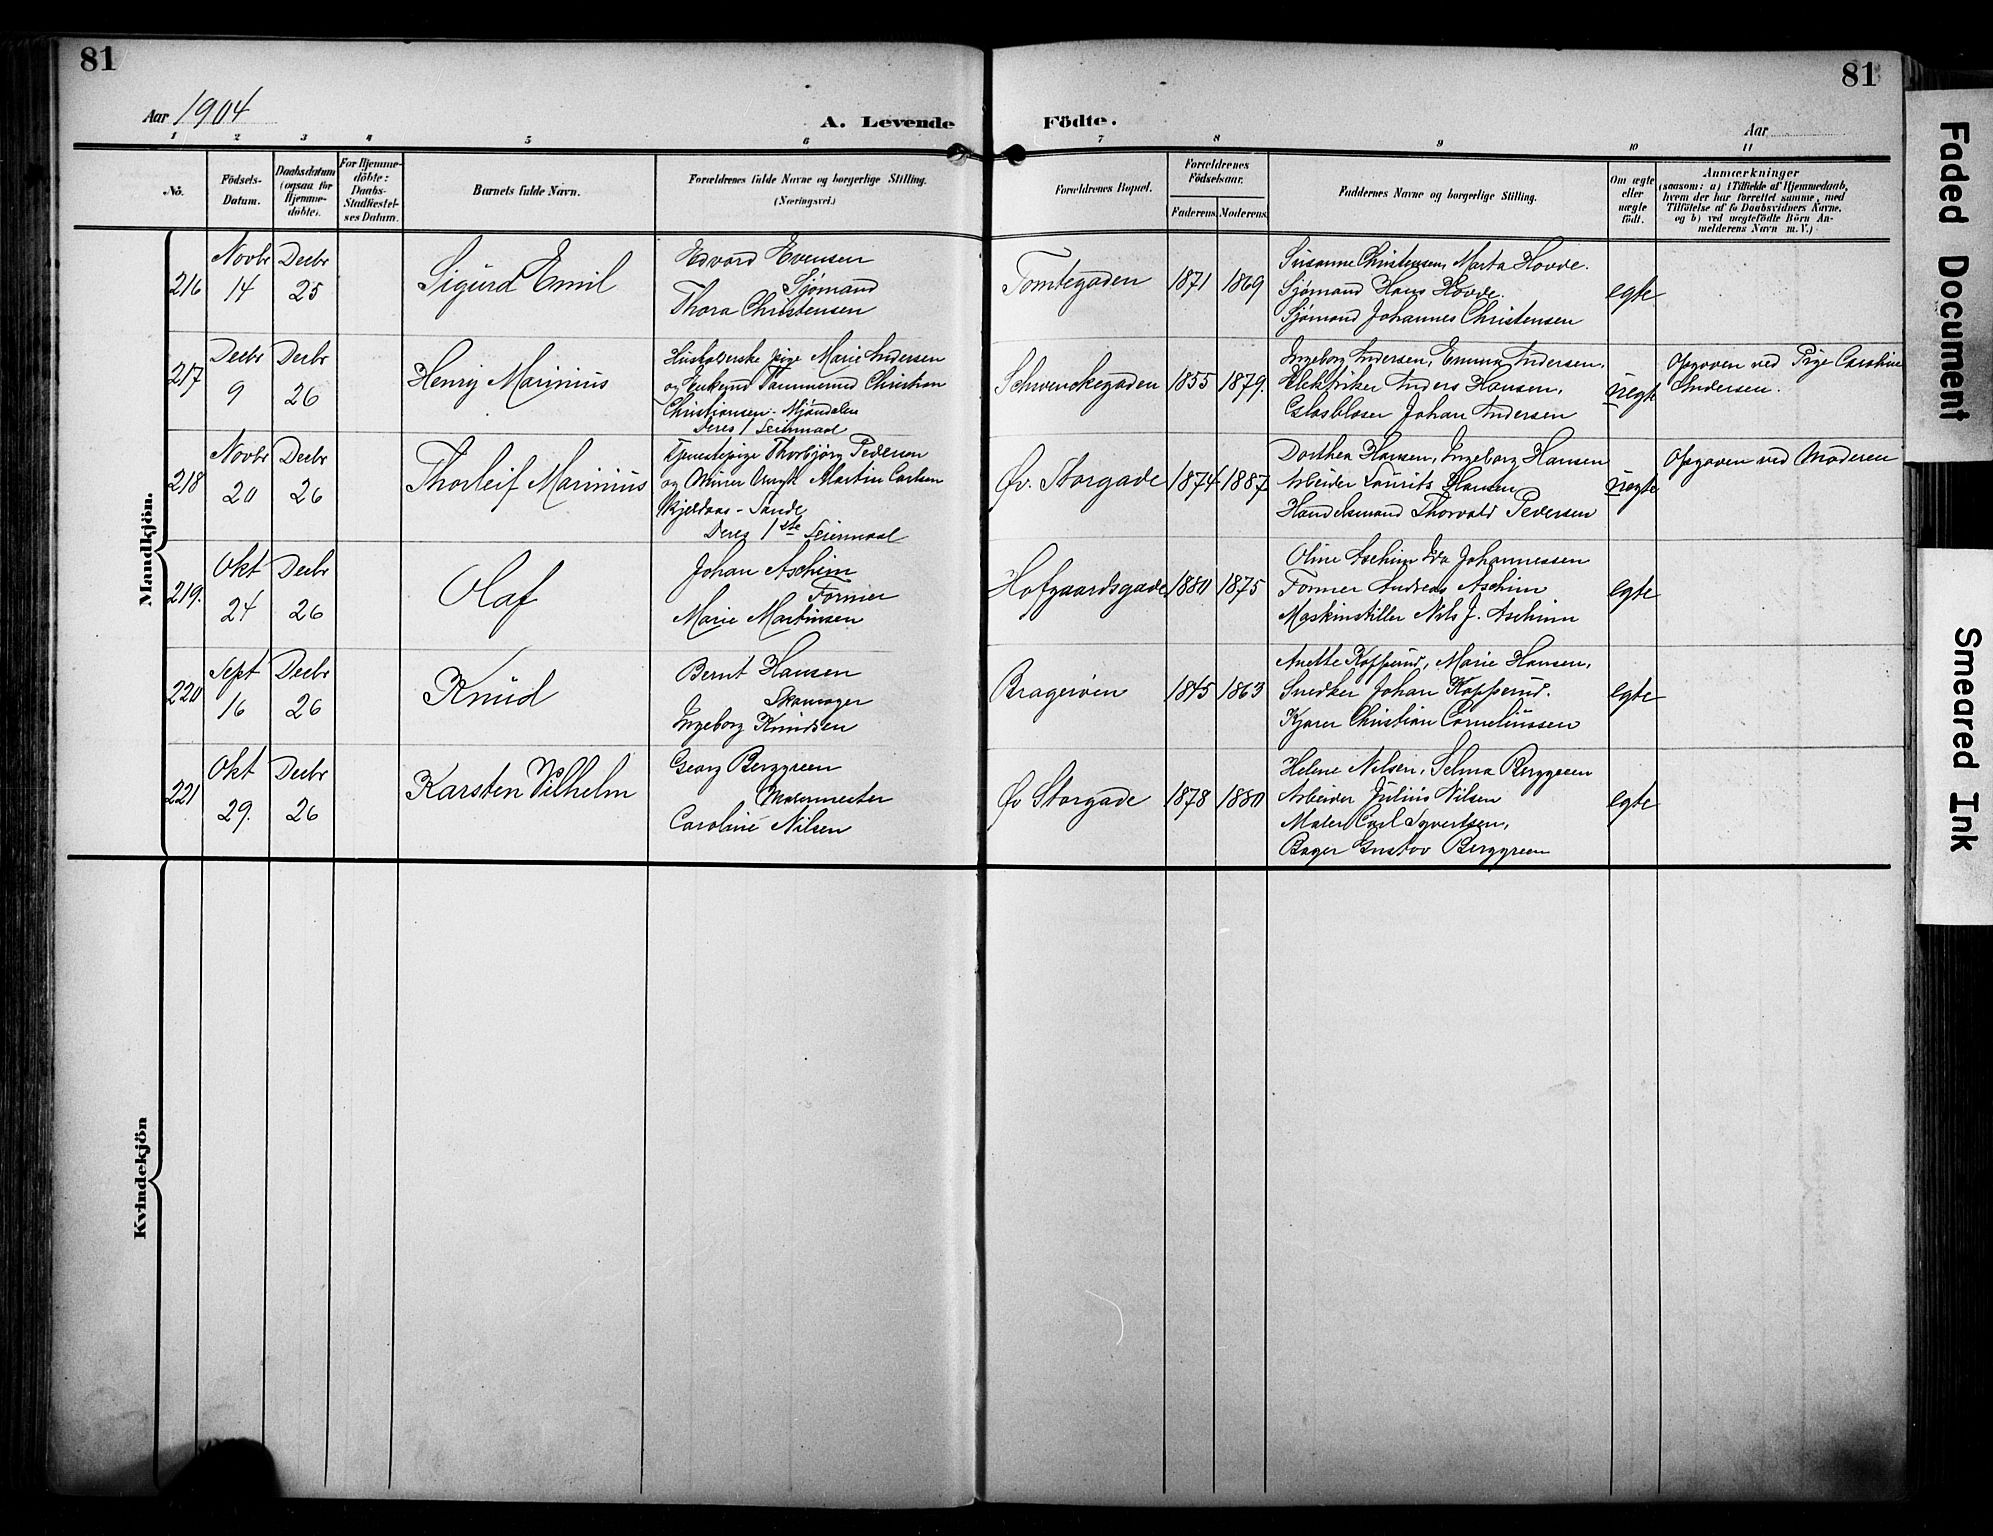 81
81
Aar 1904
A. Levende Födte.
Aar
1 2 3 4 5 6 7 8 9 10 11
No.
Födsels-Datum.
Daabsdatum (ogsaa for Hjemme-döbte).
For Hjemme-döbte: Daabs-Stadfæstel-ses Datum.
Barnets fulde Navn.
Forældrenes fulde Navne og borgerlige Stilling.
(Næringsvei.)
Forældrenes Bopæl.
Forældrenes Födselsaar.
Faderens. Moderens.
Faddernes Navne og borgerlige Stilling.
Om ægte eller uægte födt.
Anmærkninger
(saasom: a) i Tilfælde af Hjemmedaab,
hvem der har forrettet samme, med
Tilföielse af to Daabsvidners Navne,
og b) ved uægtefödte Börn An-
melderens Navn m. V.)
Mandkjön.
216 Novbr 14 Decbr 25 Sigurd Emil
Edvard Evensen
Sjømand
Thora Christensen
Tomtegaden 1871 1869
Susanne Christensen, Marta Hovde.
Sjømand Hans Hovde.
Sjømand Johannes Christensen
egte
217 Decbr 9 Decbr 26 Henry Marinius
Husholderske pige Marie Andersen
og Enkemd Tømmermd Christian
Christiansen - Mjøndalen
Deres 1 Leiermaal
Schwenckegaden 1855 1879.
Ingeborg Andersen, Emma Andersen,
Elektriker Anders Hansen,
Glasblaser Johan Andersen
uegte
Opgaven ved Pige Caroline
Andersen.
218 Novbr 20 Decbr 26 Thorleif Marinius
Tjenestepige Thorbjørg Pedersen
og Martin Carlsen
Kjeldaas - Sande
Deres 1ste Leiermaal
Øv. Storgade 1874 1887
Dorthea Hansen, Ingeborg Hansen
Arbeider Laurits Hansen
Handelsmand Thorvald Pedersen
uegte
Opgaven ved Moderen
219. Okt 24 Decbr 26 Olaf
Johan Aschim
Former
Marie Martinsen
Hofgaardsgade 1880 1875
Oline Aschim Ida Johannessen
Former Andreas Aschim
Maskinstiller Nils J. Aschim
egte
220 Sept 16 Decbr 26 Knud
Bernt Hansen
Skomager
Ingeborg Knudsen
Bragerøen 1845 1863
Anette Kopperud, Marie Hansen,
Snedker Johan Kopperud.
Kjører Christian Corneliussen
egte
221 Okt 29. Decbr 26 Karsten Vilhelm
Georg Berggreen
Malermester
Caroline Nilsen
Øv Storgade 1878 1880
Helene Nilsen, Selma Berggreen
Arbeider Julius Nilsen
Maler Carl Syvertsen,
Bager Gustav Berggreen
egte
Kvindekjön
Faded Document
Smeared Ink